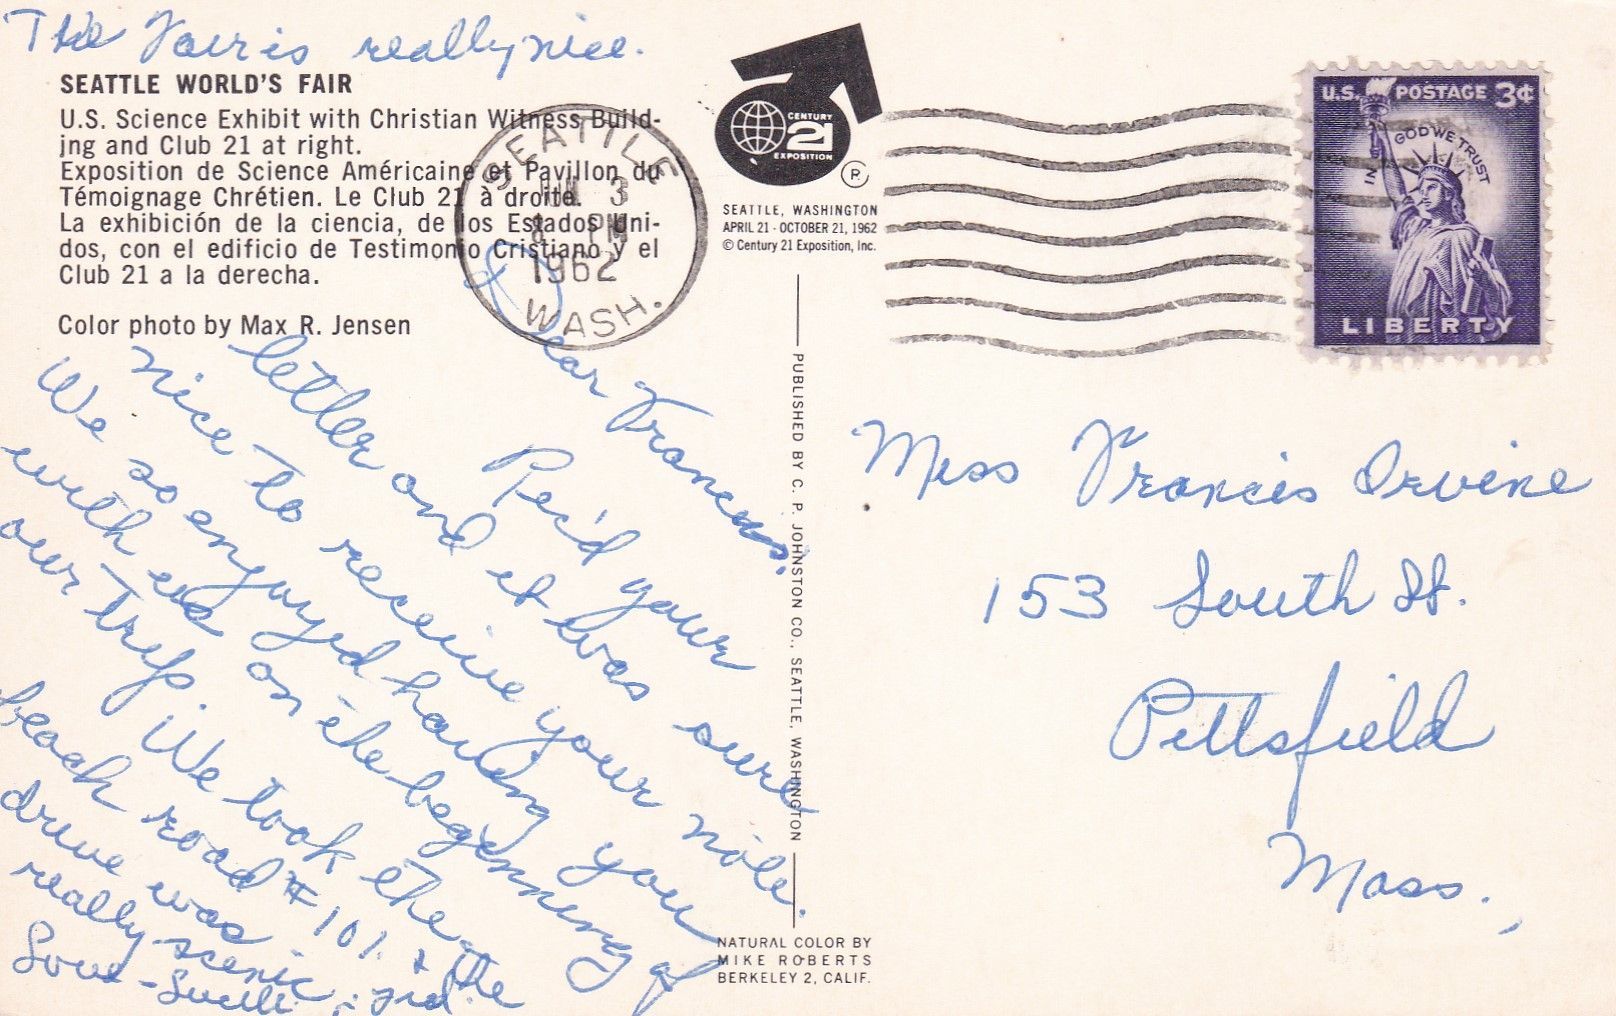 The Fair is really nice.
SEATTLE WORLD'S FAIR
U.S. Science Exhibit with Christian Witness Build-
ing and Club 21 at right.
Exposition de Science Américaine et Pavillon du
Témoignage Chrétien. Le Club 21 à droite.
La exhibición de la ciencia, de los Estados Uni-
dos, con el edificio de Testimonio Cristiano y el
Club 21 a la derecha.
Color photo by Max R. Jensen
SEATTLE
3
PM
1962
WASH.
CENTURY
21
EXPOSITION
R
SEATTLE, WASHINGTON
APRIL 21 - OCTOBER 21, 1962
© Century 21 Exposition, Inc.
U.S. POSTAGE 3¢
IN GOD WE TRUST
LIBERTY
Dear Frances:
Rec'd your
letter and it was
nice to receive your note.
We so enjoyed having you
with us on the beginning of
our trip. We took the
beach road #101 & the
drive was
really scenic
Love -
PUBLISHED BY C. P. JOHNSTON CO., SEATTLE, WASHINGTON
NATURAL COLOR BY
MIKE ROBERTS
BERKELEY 2, CALIF.
Miss Francis Irvine
153 South St.
Pittsfield
Mass.,